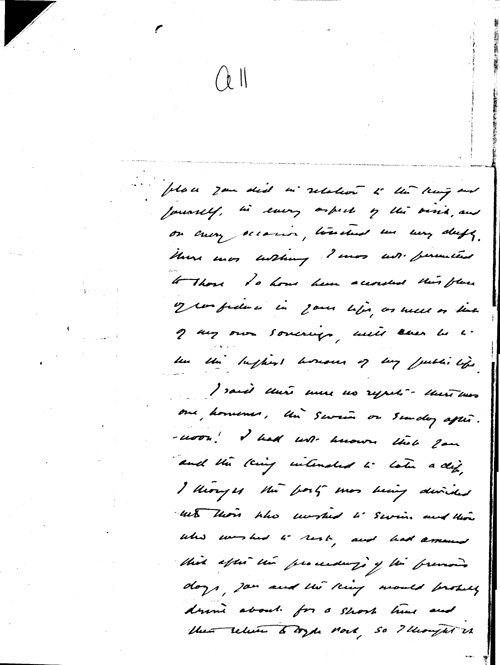 all
place you did in relation to the King and
yourself, in every aspect of the visit, and
on every occasion, touched me very deeply.
There was nothing I was not permitted
to share. To have been accorded this place
of confidence in your life, as well as that
of my own Sovereign, will ever be to
me the highest honour of my public life.
I said there were no regrets - there was
one, however, the swim on Sunday after-
-noon! I had not known that you
and the King intended to take a dip,
I thought the party was being divided
into those who wished to swim and those
who wished to rest, and had assumed
that after the proceedings of the previous
days, you and the King would probably
drive about for a short time and
then return to Hyde Park, so I thought it